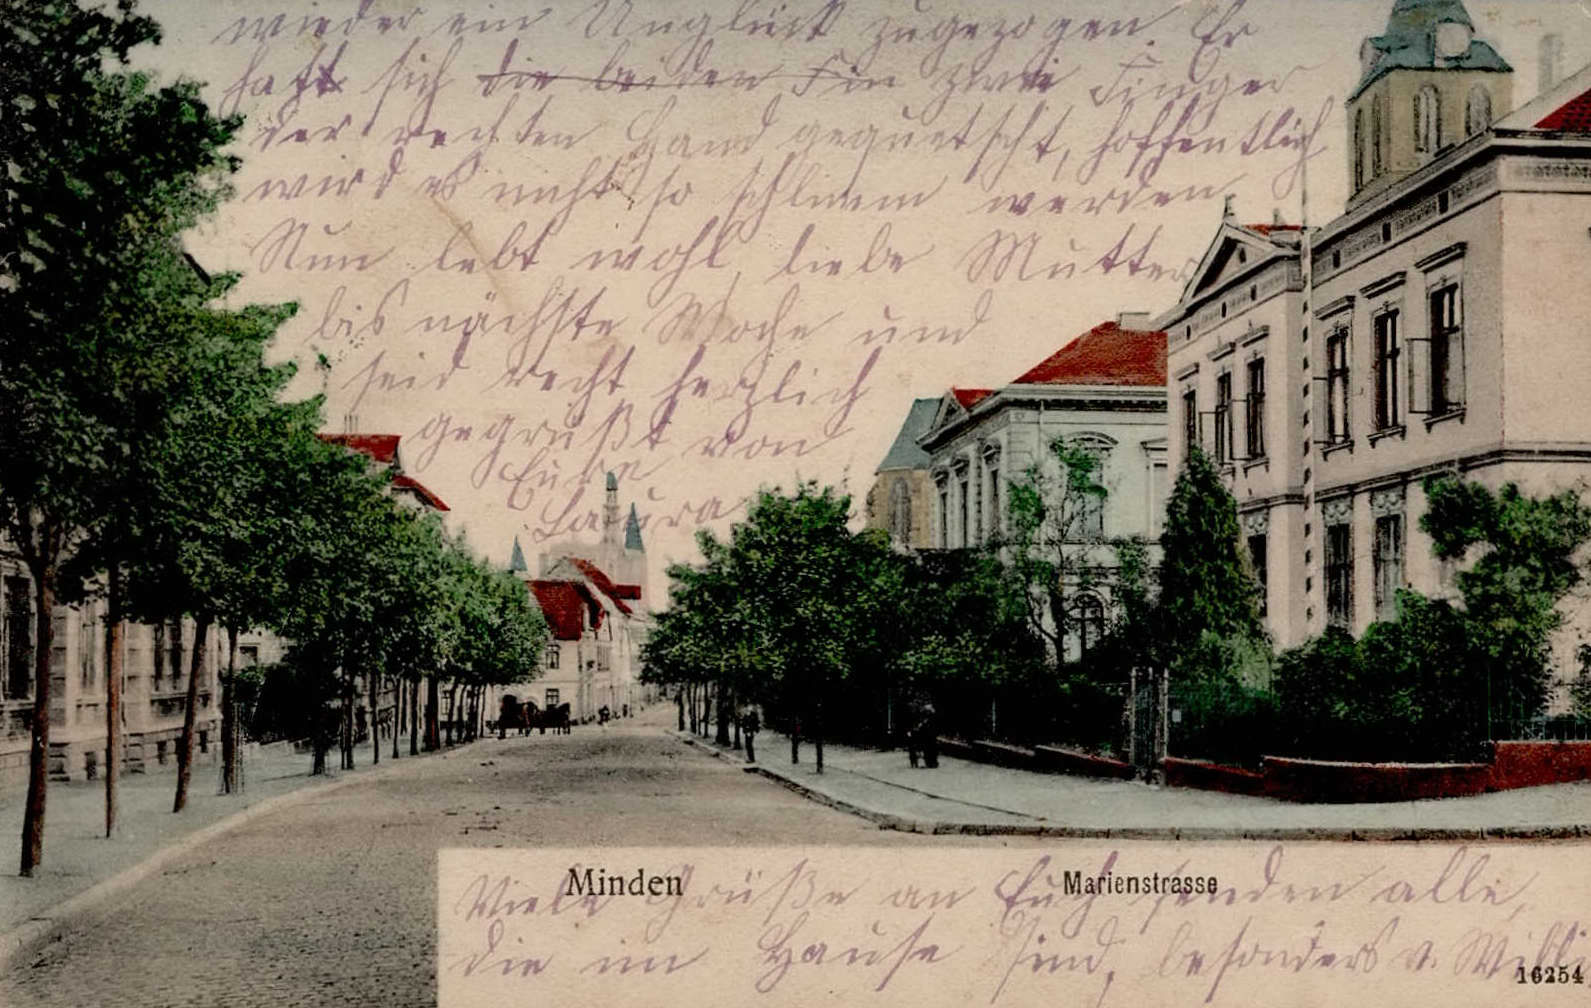 wieder ein Unglück zugezogen. Er
hatt sich die beiden Fin zwei Finger
der rechten Hand gequetscht, hoffentlich
wird es nicht so schlimm werden
Nun lebt wohl, liebe Mutter
bis nächste Woche und
seid recht herzlich
gegrüßt von
Eure
Laura
Minden
Marienstrasse
Viele Grüße an Euch senden alle,
die im Hause sind, besonders v. Willi
16254